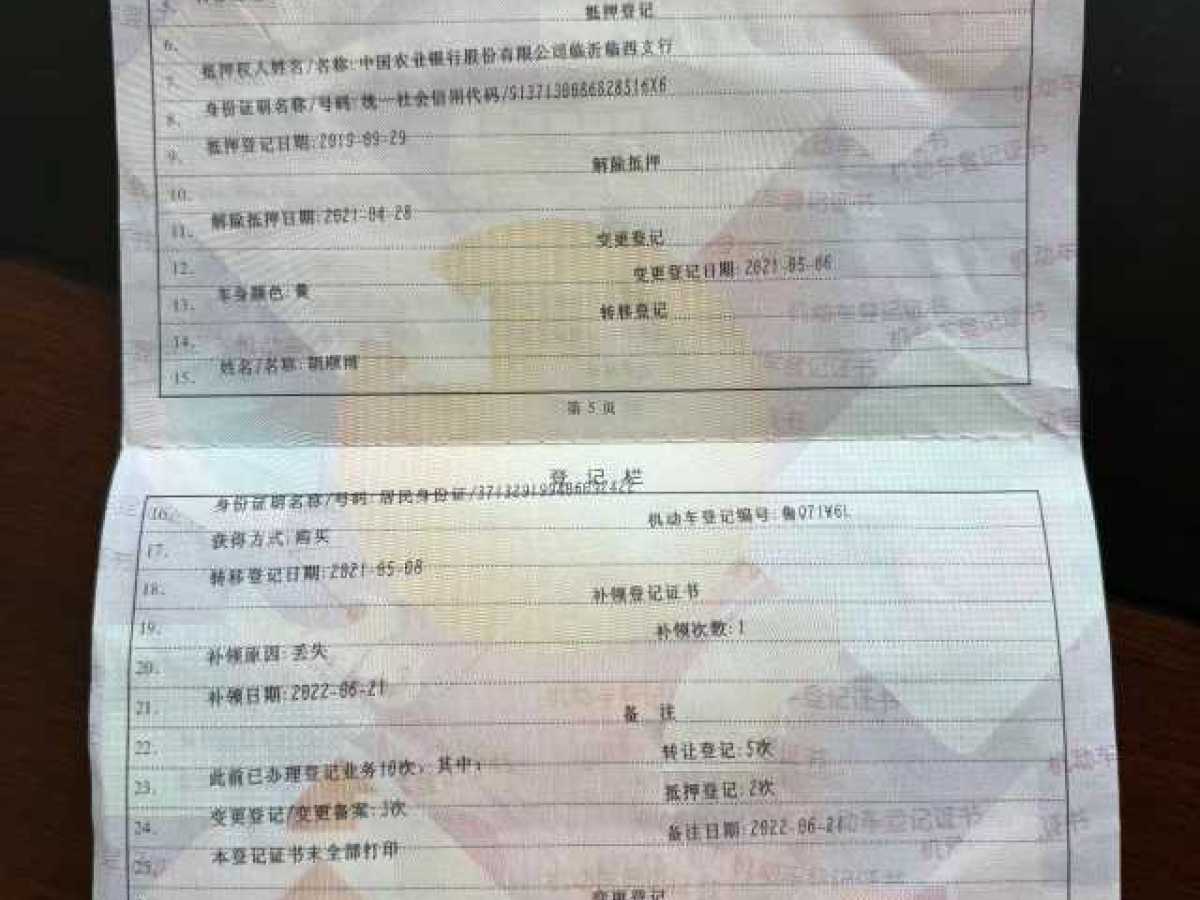 5.
抵押登记
6.
7. 抵押权人姓名/名称:中国农业银行股份有限公司临沂临西支行
8. 身份证明名称/号码:统一社会信用代码/
9. 抵押登记日期:2019-09-29
解除抵押
10.
11. 解除抵押日期:2021-04-28
变更登记
12. 变更登记日期:2021-05-06
13. 车身颜色:黄
转移登记
14.
15. 姓名/名称:
第 5 页
登 记 栏
16. 身份证明名称/号码:居民身份证/
机动车登记编号:
17. 获得方式:购买
18. 转移登记日期:2021-05-08
补领登记证书
19. 补领次数:1
20. 补领原因:丢失
21. 补领日期:2022-06-21
备 注
22. 转让登记:5次
23. 此前已办理登记业务10次,其中:
抵押登记:2次
24. 变更登记/变更备案:3次
备注日期:2022-06-21
25. 本登记证书未全部打印
变更登记